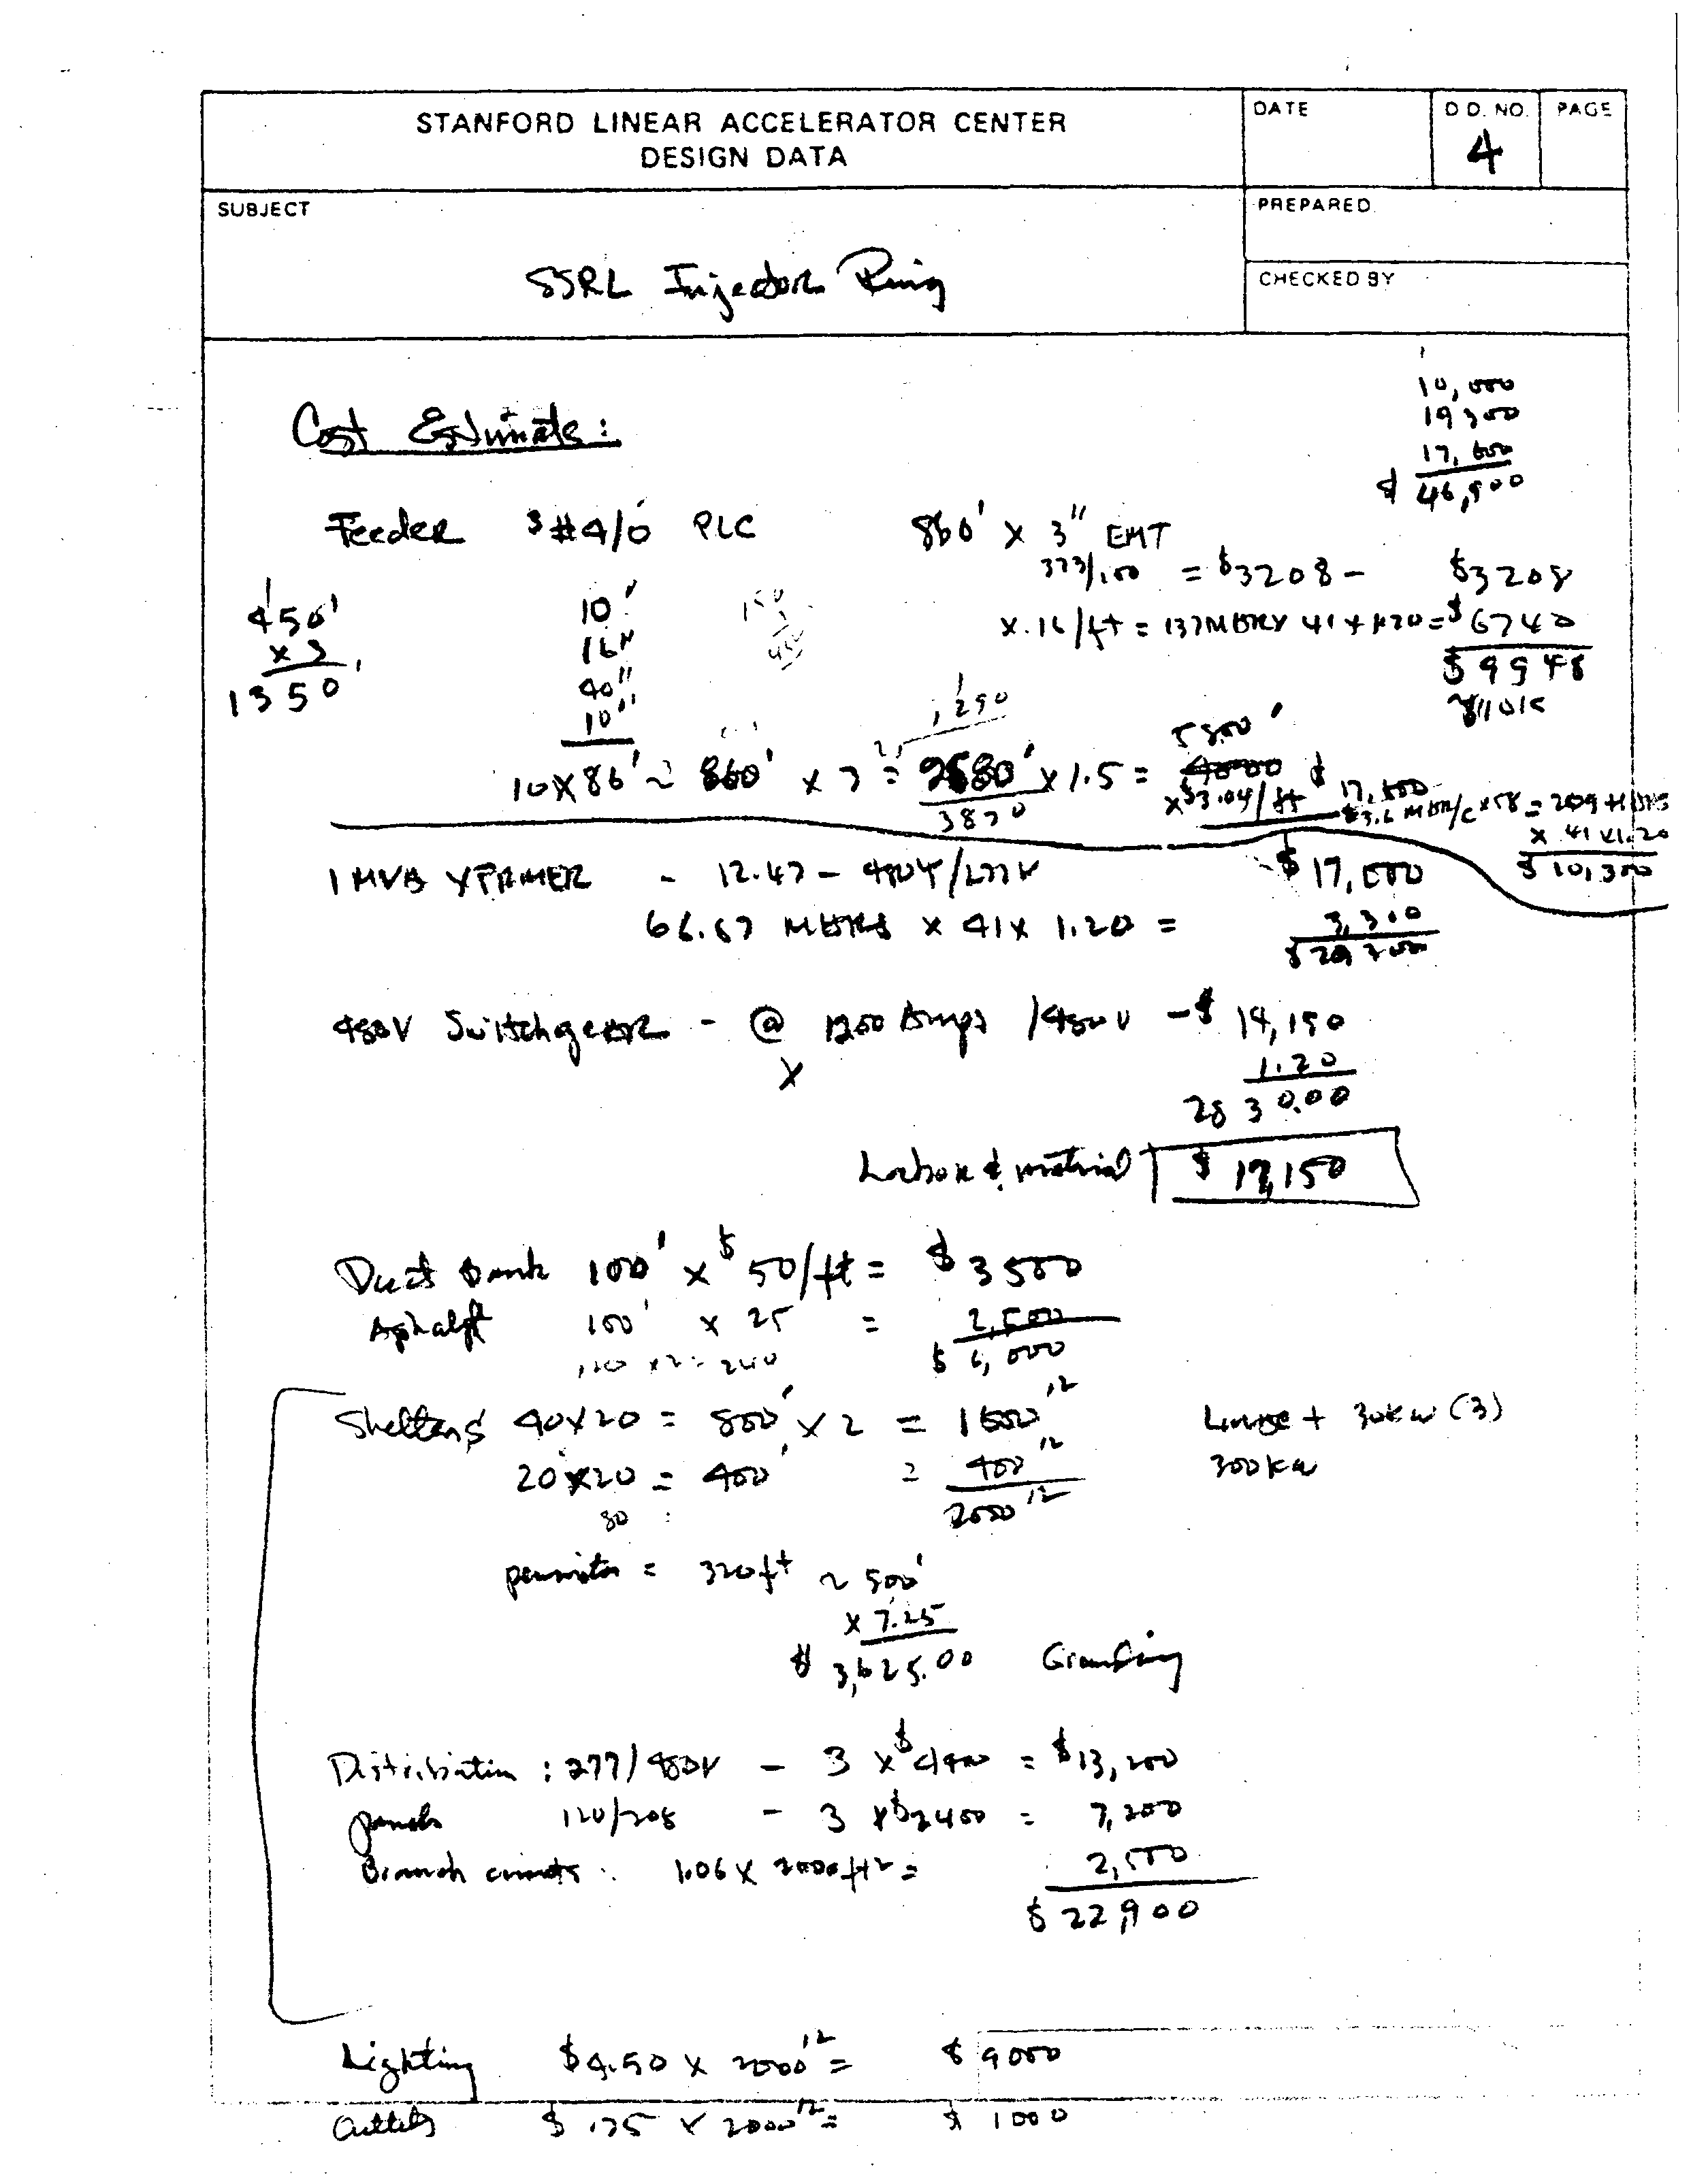 STANFORD LINEAR ACCELERATOR CENTER
DESIGN DATA
DATE
D D. NO.
4
PAGE
SUBJECT
SSRL Injector Ring
PREPARED
CHECKED BY
10,000
19300
17,600
$ 46,900
Cost Estimate:
Feeder 3#4/0 PLC 860' x 3" EMT
373/100 = $3208- $3208
x.16/ft = 137 x 41 x 1.20 = $6740
$9948
450'
x 3
1350'
10'
16"
40"
10"
10x86' ~ 860' x 3 = 2580' x 1.5 =
1,290
3870
5800'
x$3.04/ft
x 41 x1.20
$10,300
1 MVA XFRMER - 12.47 - 480Y/277V $17,000
66.67 x 41 x 1.20 = 3,300
480V Switchgear - @ 1200 Amps /480V - $14,150
x
1.20
2830.00
Labor & material $17,150
Duct Bank 100' x $50/ft = $3500
Asphalt 100' x 25 = 2,500
$6,000
Shelters 40x20 = 800' x 2 = 1600
30kw (3)
20x20 = 400' = 400
300kw
30
2000
perimeter = 320ft ~ 500'
x 7.25
$3,625.00 Grounding
Distribution: 277/480V - 3 x $4400 = $13,200
panels 120/208 - 3 x $2400 = 7,200
Branch circuits: 1.06 x 2000ft2 = 2,500
$22,900
Lighting $4.50 x 2000 = $9000
Outlets $ x 2000 = $1000